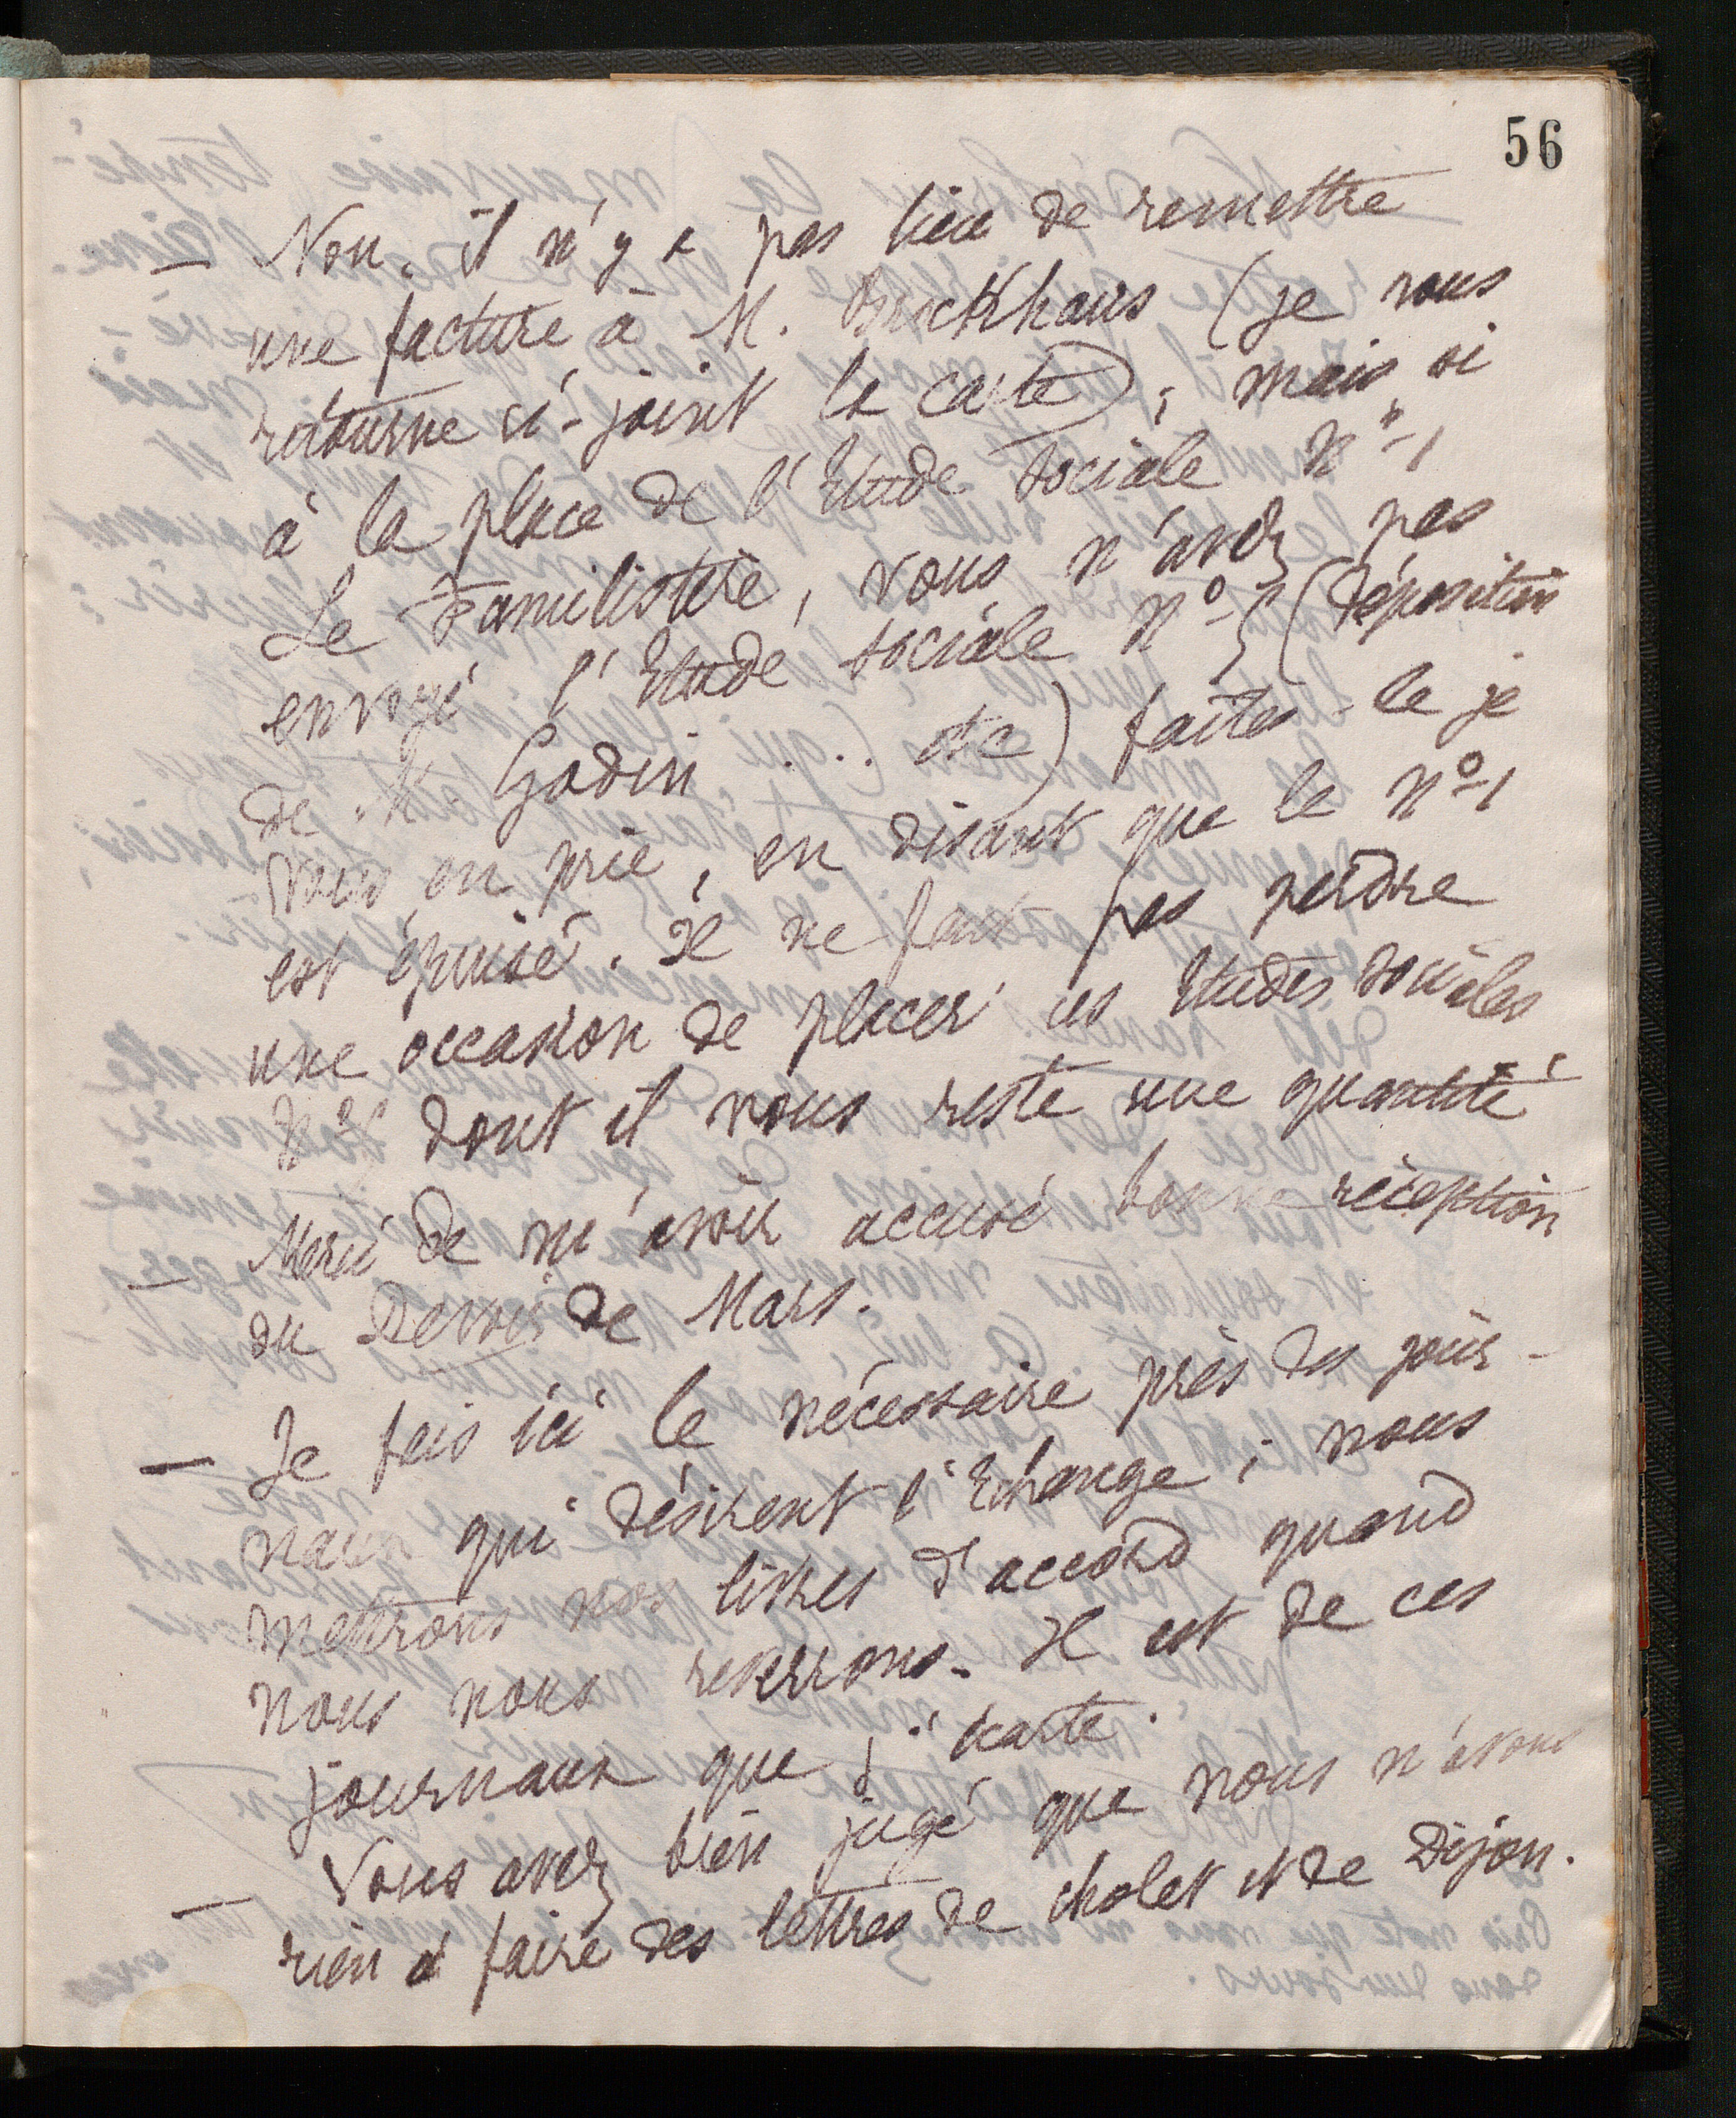 56
— Non, il n'y a pas lieu de remettre
une facture à M. Brockhaus (je vous
retourne ci-joint la carte); mais, si
à la place de l'Etude sociale N° 1
Le Familistère, vous n'avez pas
envoyé l'Etude sociale N° 5 (Déposition
de M. Godin . . . etc) faites-le je
vous en prie, en disant que le N° 1
est épuisé. Il ne faut pas perdre
une occasion de placer ces Etudes sociales
N° 5 dont il nous reste une quantité
— Merci de m'avoir accusé bonne réception
du Devoir de Mars.
— Je fais ici le nécessaire près des jour-
naux qui désirent l'Echange; nous
mettrons nos listes d'accord quand
nous nous reverrons. Il est de ces
journaux que j'écarte.
— Vous avez bien jugé que nous n'avons
rien à faire des lettres de Cholet et de Dijon.